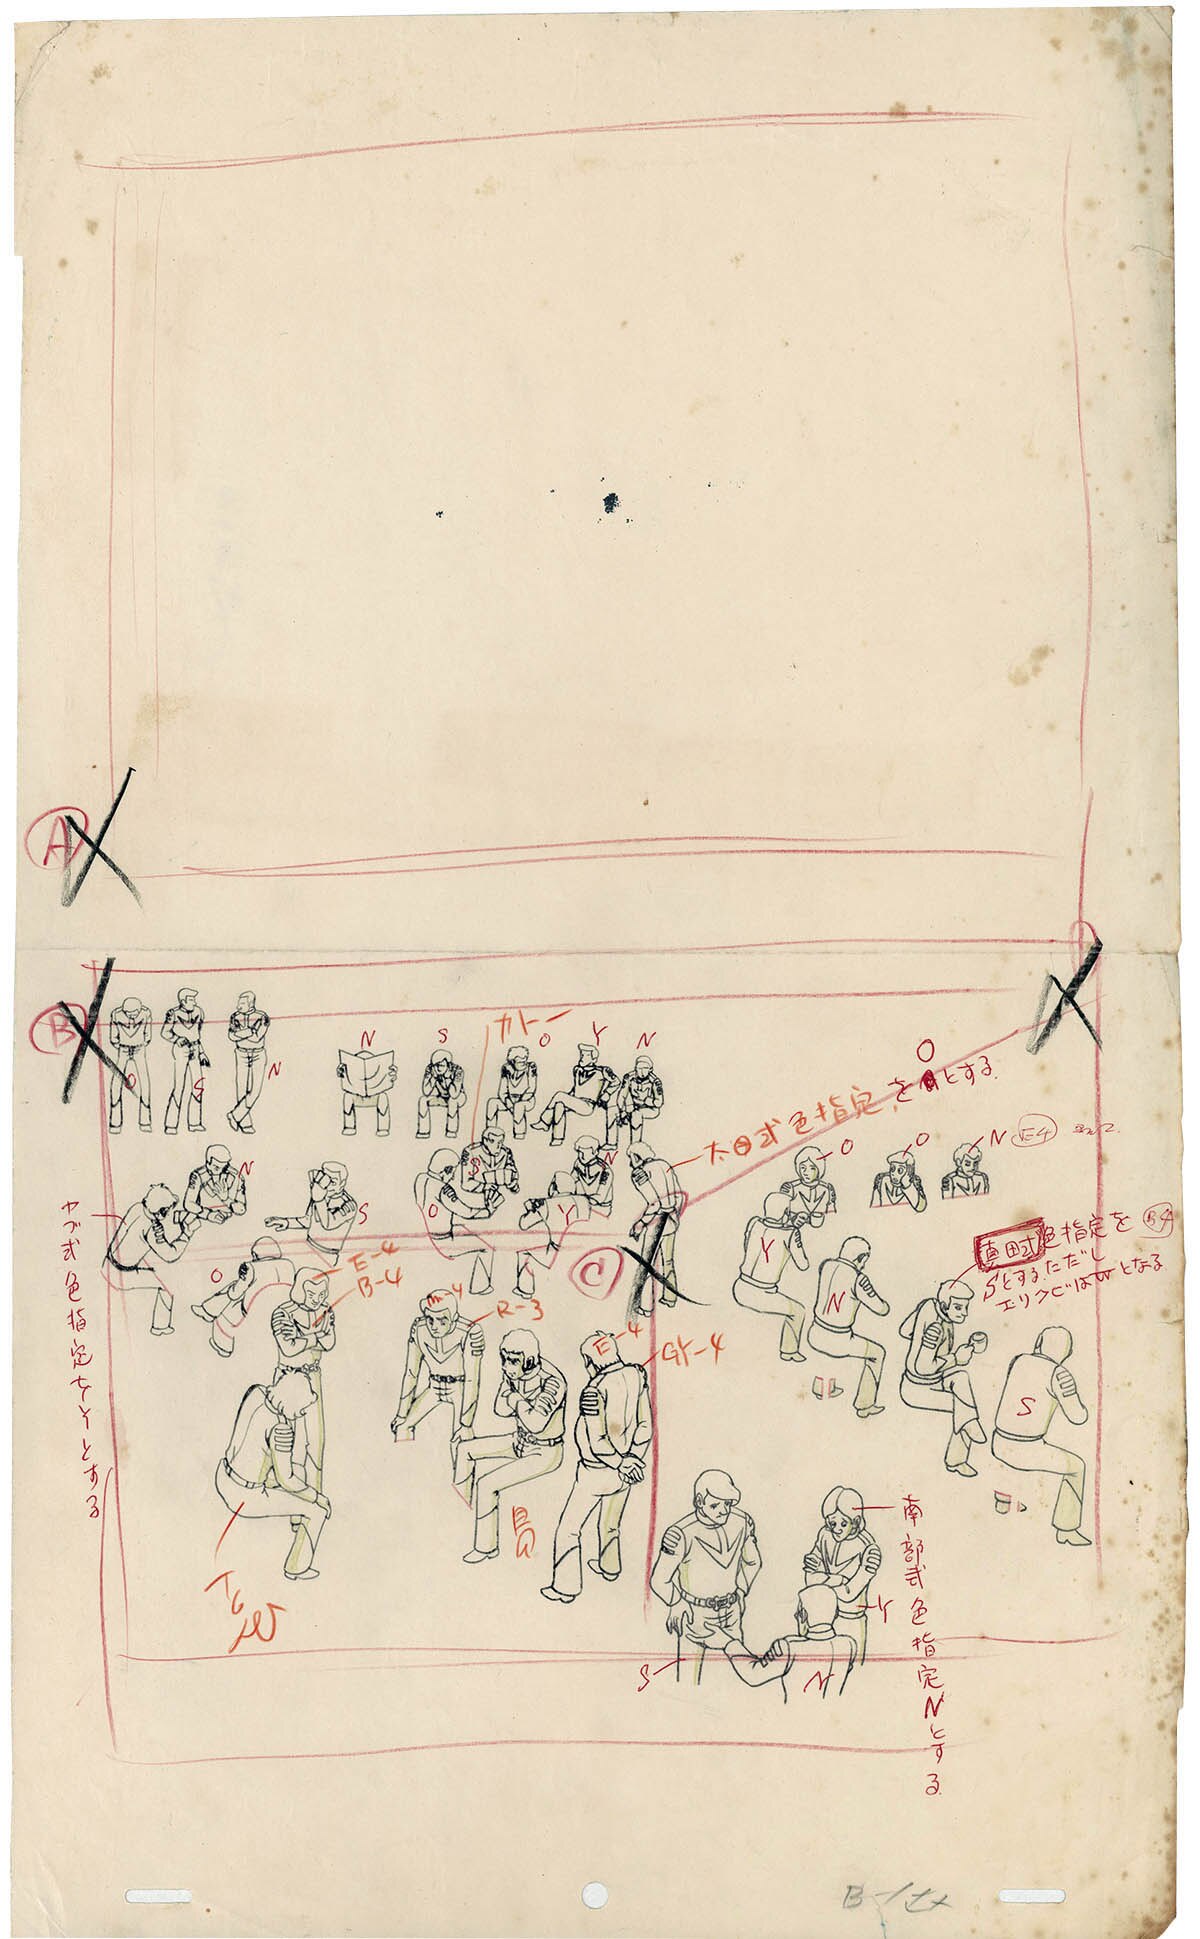 A
B
O
S
N
N
S
カトー
O
Y
N
太田式色指定をOとする
O
O
N
E4
N
S
O
S
Y
N
ヤブ式色指定をYとする
O
E-4
B-4
m-4
R-3
E-4
GY-4
C
Y
N
真田式色指定を
B4
Sとする.ただし
エリクビはWとなる
S
員
南部式色指定Nとする
Y
S
N